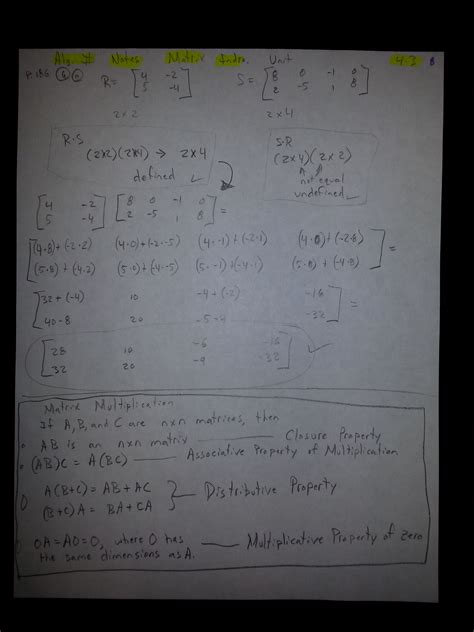 Alg. II Notes Matrix Intro. Unit 4.3
P. 186 R = [4 -2 S = [8 0 -1 0
5 -4] 2 -5 1 8]
2x2 2x4
R·S S·R
(2x2)(2x4) → 2x4 (2x4)(2x2)
defined ✓ not equal
undefined ✓
[4 -2 [8 0 -1 0
5 -4] 2 -5 1 8] =
[(4·8)+(-2·2) (4·0)+(-2·-5) (4·-1)+(-2·1) (4·0)+(-2·8)
(5·8)+(-4·2) (5·0)+(-4·-5) (5·-1)+(-4·1) (5·0)+(-4·8)] =
[32+(-4) 10 -4+(-2) -16
40-8 20 -5-4 -32] =
[28 10 -6 -16
32 20 -9 -32] ✓
Matrix Multiplication
If A, B, and C are nxn matrices, then
• AB is an nxn matrix — Closure Property
• (AB)C = A(BC) — Associative Property of Multiplication
A(B+C) = AB + AC
(B+C)A = BA + CA } Distributive Property
OA = AO = O, where O has — Multiplicative Property of Zero
the same dimensions as A.